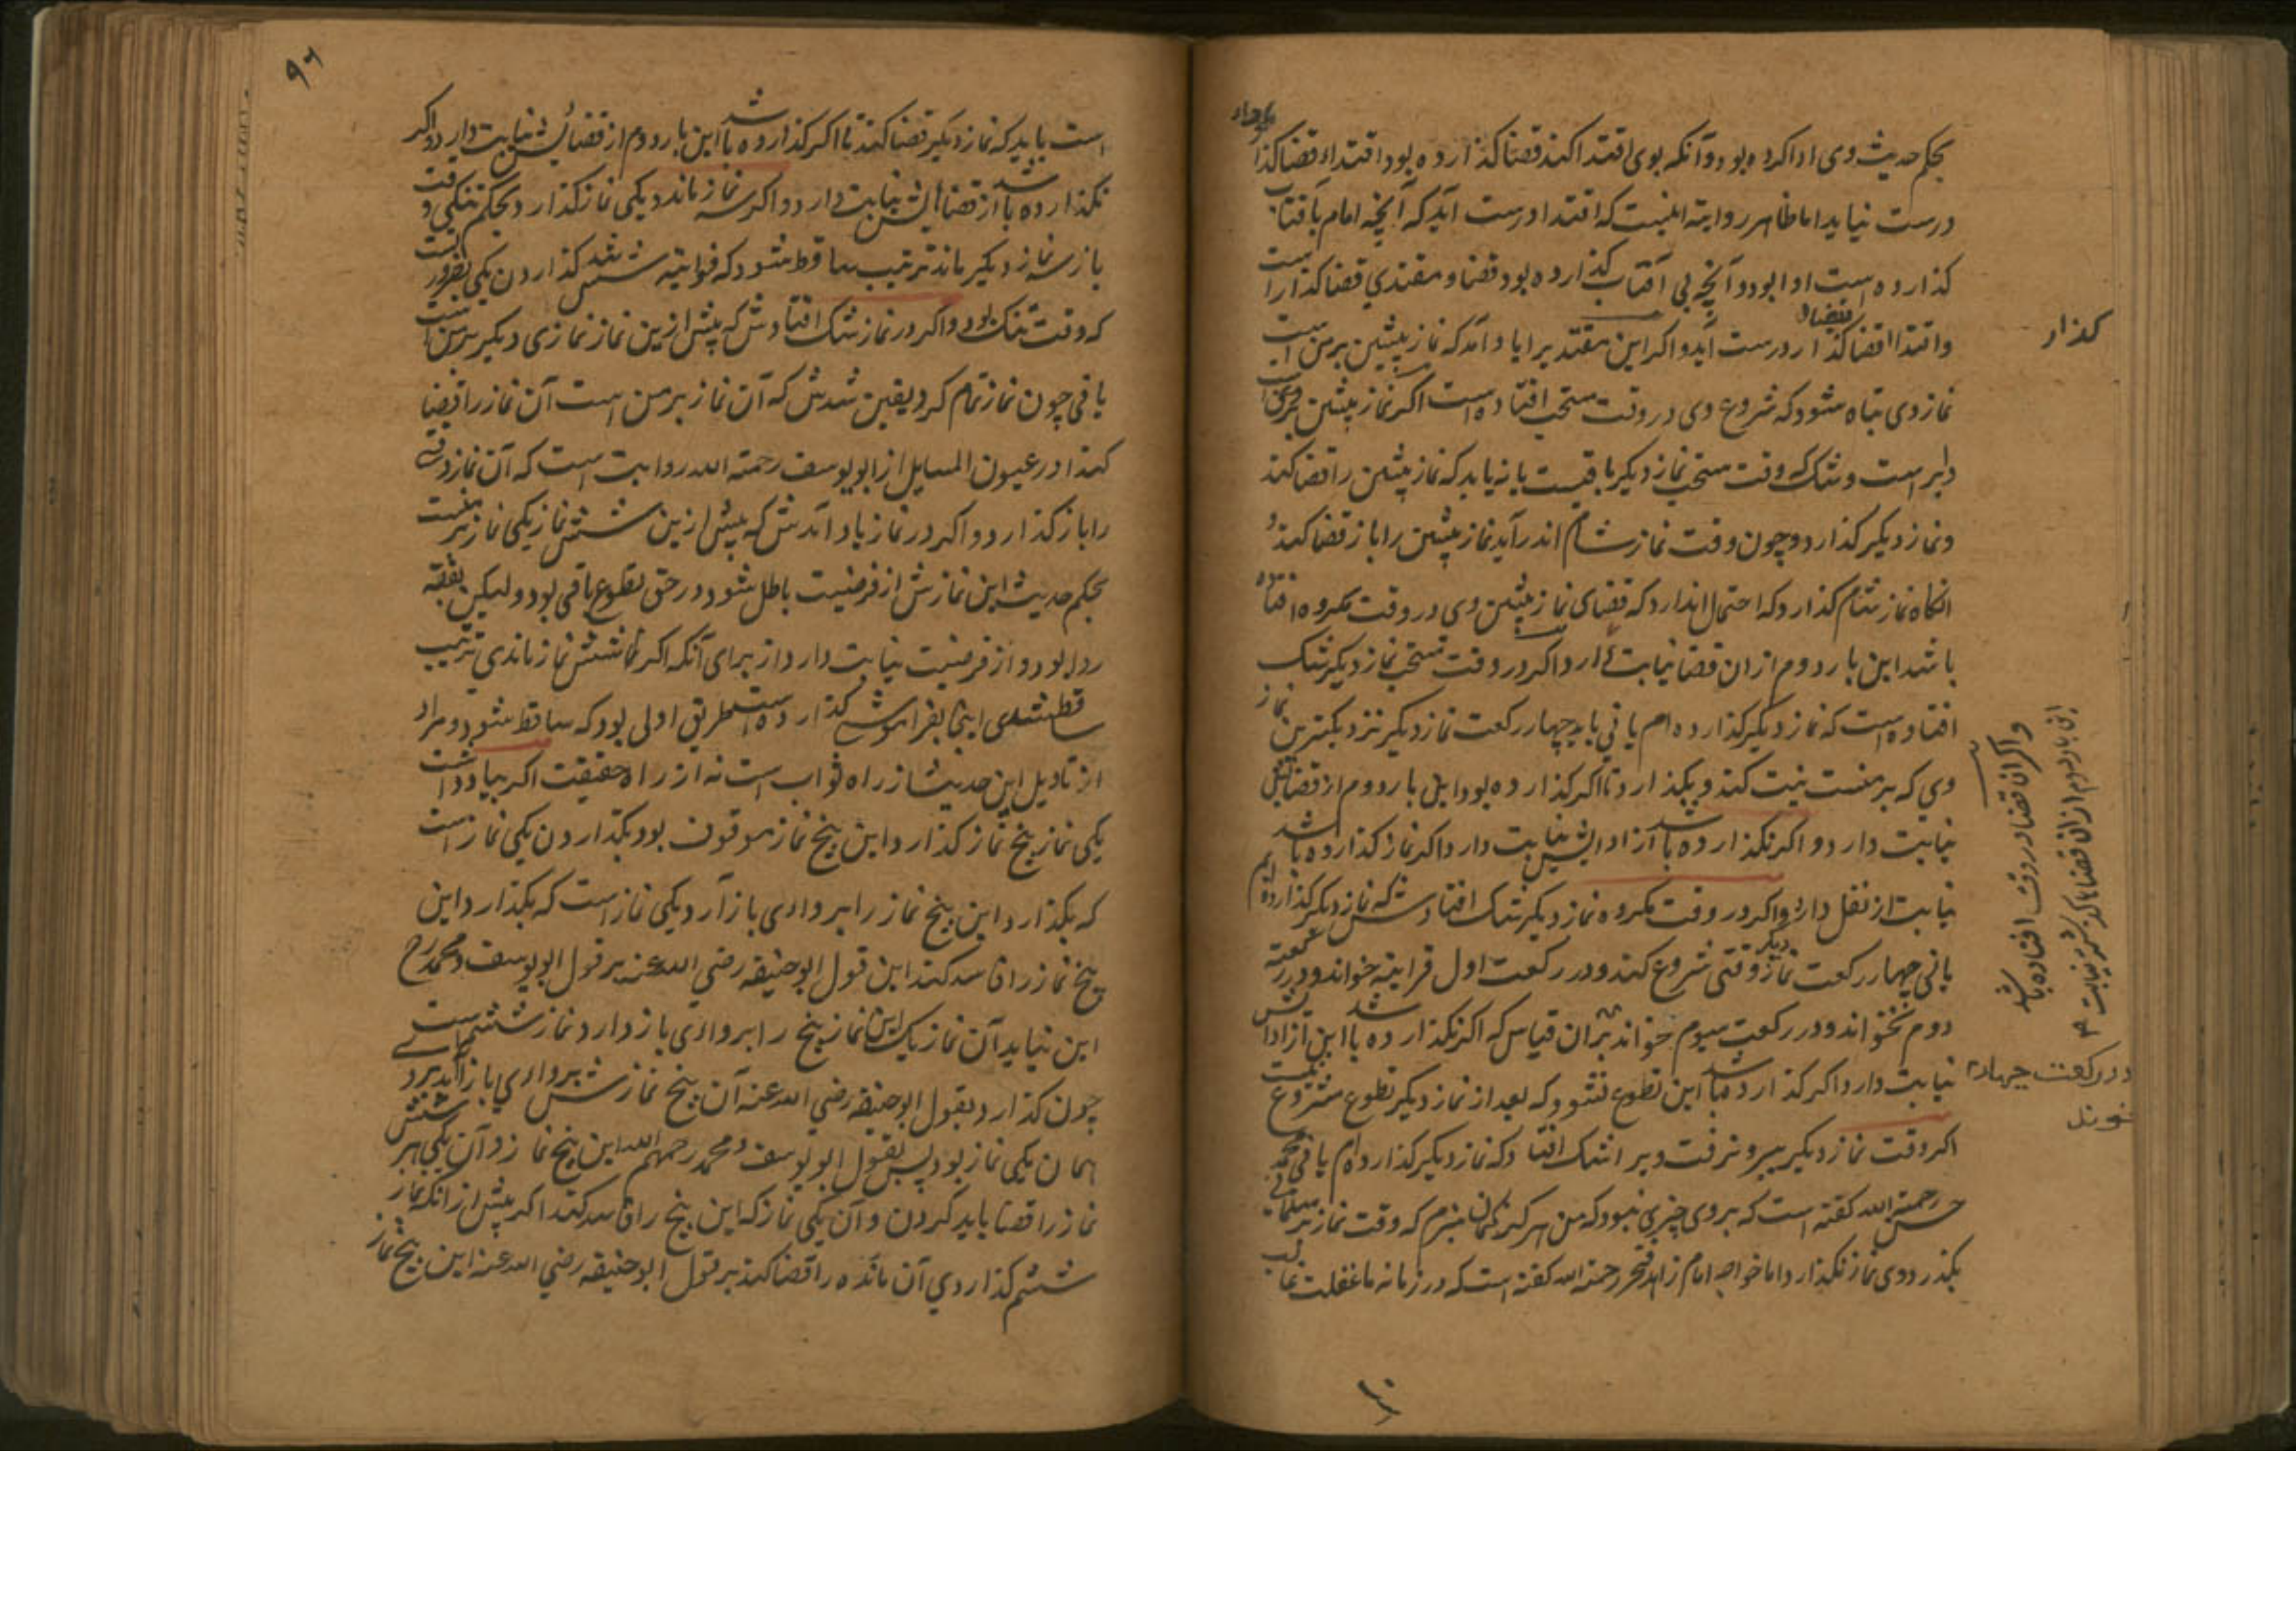 بحکم حدیث وی ادا کرده بود و آنکه بوی اقتدا کند قضا کذارده بود اقتداء قضا کذا
درست نیاید اما ظاهر روایة اینست که اقتدا درست آید که آنچه امام بآفتاب
کذارده است ادا بود و آنچه بی آفتاب کذارده بود قضا و مقتدی قضا کذار است
واقتداء قضا کذار درست آید و اکر این مقتدیرا یاد آمد که نماز پیشین بر من است
نماز وی تباه شود که شروع وی در وقت مستحب افتاده است اکر نماز پیشین بر وی
و شک که وقت مستحب نماز دیکر باقیست یا نه باید که نماز پیشین را قضا کند
و نماز دیکر کذارد و چون وقت نماز شام اندر آید نماز پیشین را باز قضا کند و
انکاه نماز شام کذارد که احتمال دارد که قضای نماز پیشین وی در وقت مکروه افتاده
باشد این بار دوم از ان قضا نیابت دارد اکر در وقت مستحب نماز دیکر شک
افتاده است که نماز دیکر کذارده ام یا نی باید چهار رکعت نماز دیکر نزدیکترین نماز
وی که بر منست نیت کند و بکذارد تا اکر کذارده بود این بار دوم از قضایش
نیابت دارد و اکر نکذارده باشد از ادایش نیابت دارد اکر نماز کذارده باشد
نیابت از نفل دارد و اکر در وقت مکروه نماز دیکر شک افتادش که نماز دیکر کذارده ام
یا نی چهار رکعت نماز دیکر وقتی شروع کند و در رکعت اول قراءة خواند و در رکعت
دوم نخواند و در رکعت سیوم خواند بران قیاس که اکر نکذارده باشد این از اداش
نیابت دارد اکر کذارده باشد این تطوع نشود که بعد از نماز دیکر تطوع مشروع نیست
اکر وقت نماز دیکر بیرون رفت و ویرا شک افتاد که نماز دیکر کذارده ام یا نی محمد
حسن رحمة الله کفته است که بروی چیزی نبود که من هرکز کمان نبرم که وقت نماز بر مسلمانی
بکذرد و وی نماز نکذارد اما خواجه امام زاهد فخر رحمة الله کفته است که در زمانه ما غفلت غالب
کذار
واکر ان قضا در وقت افتاده باشد
این بار دوم از ان قضا نیابت
و در رکعت چهارم
۹۶
است باید که نماز دیکر قضا کند تا اکر کذارده باشد این بار دوم از قضایش نیابت دارد و اکر
نکذارده باشد از قضایش نیابت دارد و اکر سه نماز ماند و یکی نماز کذارد بحکم تنکی وقت و
باز سه نماز دیکر ماند ترتیب ساقط شود که فوایته شش شد کذاردن یکی بضرورتست
که وقت تنک بود و اکر در نماز شک افتادش که پیش ازین نماز نمازی دیکر بر من است
یا نی چون نماز تمام کرد یقین شدش که آن نماز بر من است آن نماز را قضا
کند و در عیون المسایل از ابو یوسف رحمة الله روایت است که آن نماز وقتی
را باز کذارد و اکر در نماز یاد آمدش که پیش ازین شش نماز یکی نماز بر منست
بحکم حدیث این نمازش از فرضیت باطل شود و در حق تطوع باقی بود ولیکن
روا بود و از فرضیت نیابت دارد از برای آنکه اکر شش نماز ماندی ترتیب
ساقط شدی اینجا بفراموشی کذارده است بطریق اولی بود که ساقط شود و مراد
از تاویل این حدیث از راه ثواب است نه از راه حقیقت اکر بیاد داشت
یکی نماز پنج نماز کذارد این پنج نماز موقوف بود بکذاردن یکی نماز است
که بکذارد این پنج نماز را بروادی باز آرد یکی نماز است که بکذارد این
پنج نماز را فاسد کند این قول ابو حنیفه رضی الله عنه بر قول ابو یوسف و محمد رح
این نیاید آن نماز یک این نماز پنج را بروادی باز دارد نماز ششم است
چون کذارد بقول ابو حنیفه رضی الله عنه آن پنج نمازش بروادی باز آید برو
همان یکی نماز بود پس بقول ابو یوسف و محمد رحمهم الله این پنج نماز و آن یکی هر شش
نماز را قضا باید کردن و آن یکی نماز که این پنج را فاسد کند اکر پیش از انکه نماز
ششم کذاردی آن مانده را قضا کند بر قول ابو حنیفه رضی الله عنه این پنج نماز